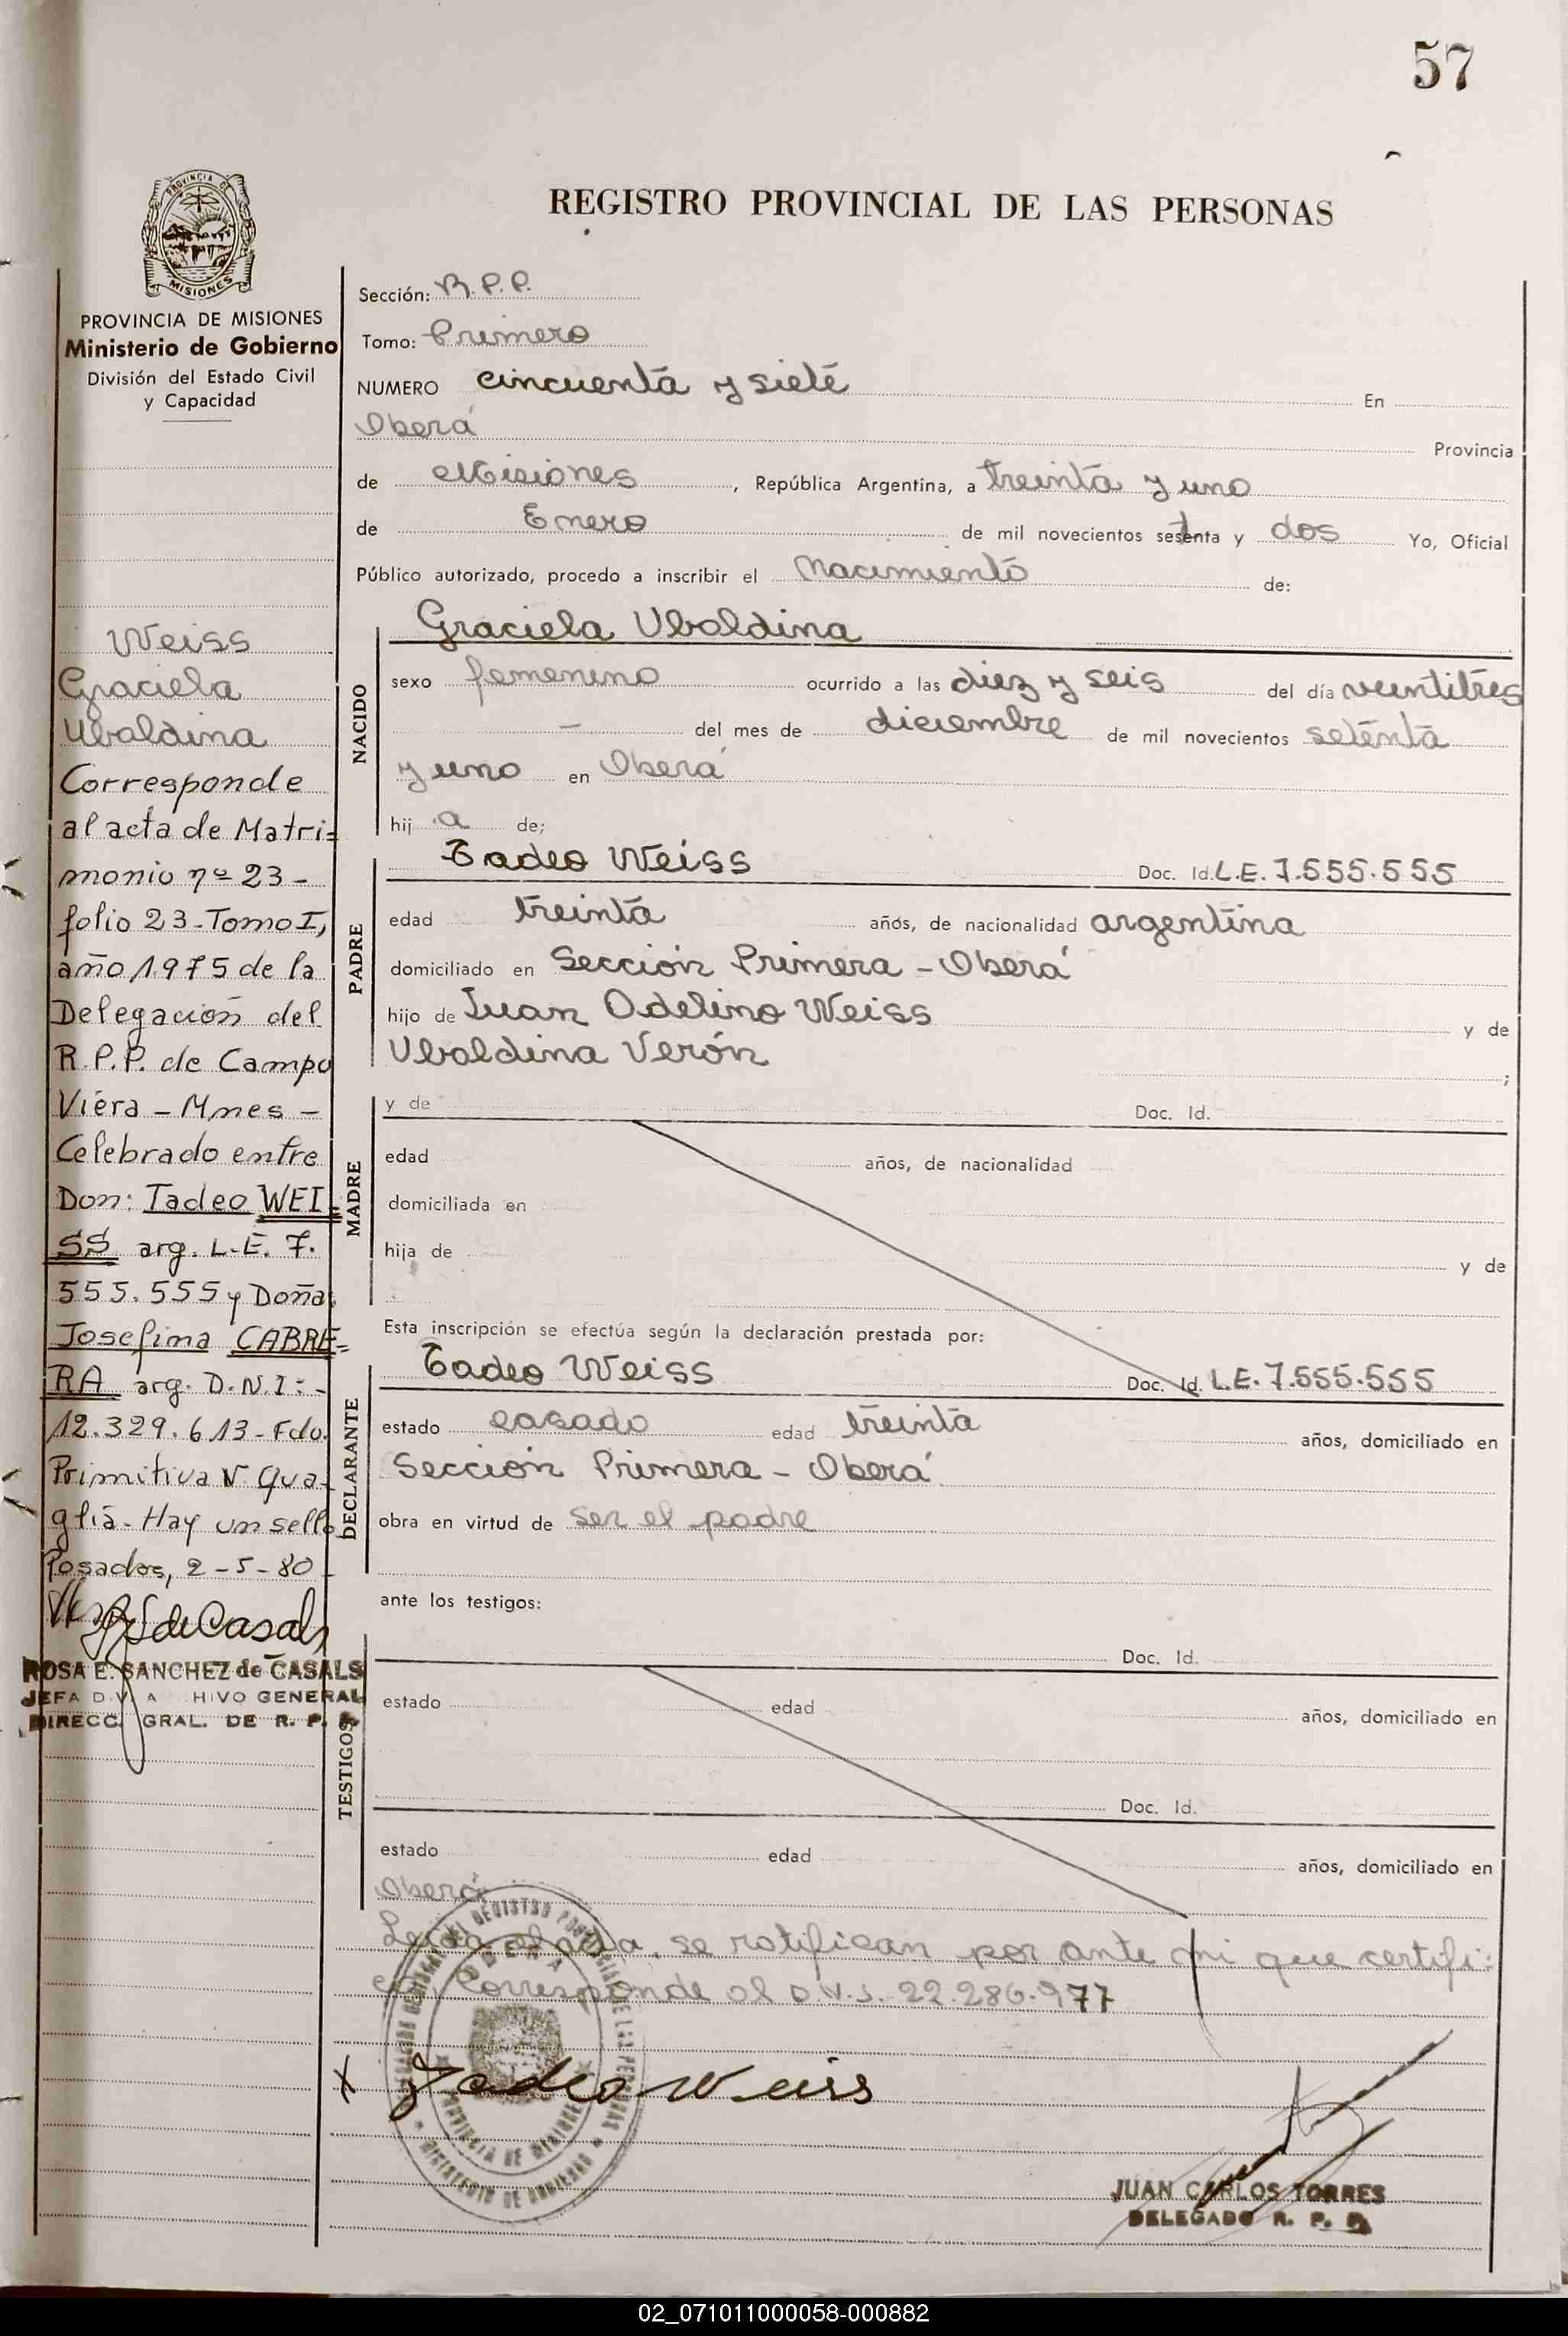 57
REGISTRO PROVINCIAL DE LAS PERSONAS
PROVINCIA DE MISIONES
Ministerio de Gobierno
División del Estado Civil
y Capacidad
Weiss
Graciela
Ubaldina
Corresponde
al acta de Matri=
monio nº 23 -
folio 23 - Tomo I,
año 1.975 de la
Delegación del
R.P.P. de Campo
Viera - Mnes -
Celebrado entre
Don: Tadeo WEI=
SS arg. L.E. 7.
555.555 y Doña
Josefina CABRE=
RA arg. D.N.I: -
12.329.613 - Fdo.
Primitiva N. Qua-
glia - Hay un sello
Posadas, 2-5-80 -
ROSA E. SANCHEZ de CASALS
JEFA DIV A HIVO GENERAL
DIRECC. GRAL. DE R. P. P.
Sección: R.P.P.
Tomo: Primero
NUMERO cincuenta y siete En
Oberá Provincia
de Misiones, República Argentina, a treinta y uno
de Enero de mil novecientos setenta y dos Yo, Oficial
Público autorizado, procedo a inscribir el Nacimiento de:
NACIDO
Graciela Ubaldina
sexo femenino ocurrido a las diez y seis del día veintitrés
— del mes de diciembre de mil novecientos setenta
y uno en Oberá
hij a de;
PADRE
Tadeo Weiss Doc. Id. L.E. 7.555.555
edad treinta años, de nacionalidad argentina
domiciliado en Sección Primera - Oberá
hijo de Juan Odelino Weiss y de
Ubaldina Verón ;
MADRE
y de Doc. Id.
edad años, de nacionalidad
domiciliada en
hija de y de
Esta inscripción se efectúa según la declaración prestada por:
DECLARANTE
Tadeo Weiss Doc. Id. L.E. 7.555.555
estado casado edad treinta años, domiciliado en
Sección Primera - Oberá
obra en virtud de ser el padre
ante los testigos:
TESTIGOS
Doc. Id.
estado edad años, domiciliado en
Doc. Id.
estado edad años, domiciliado en
Oberá
Leída el acta, se ratifican por ante mi que certifi:
co. Corresponde al D.N.I. 22.286.977
X Tadeo Weiss
JUAN CARLOS TORRES
DELEGADO R. P. P.
02_071011000058-000882